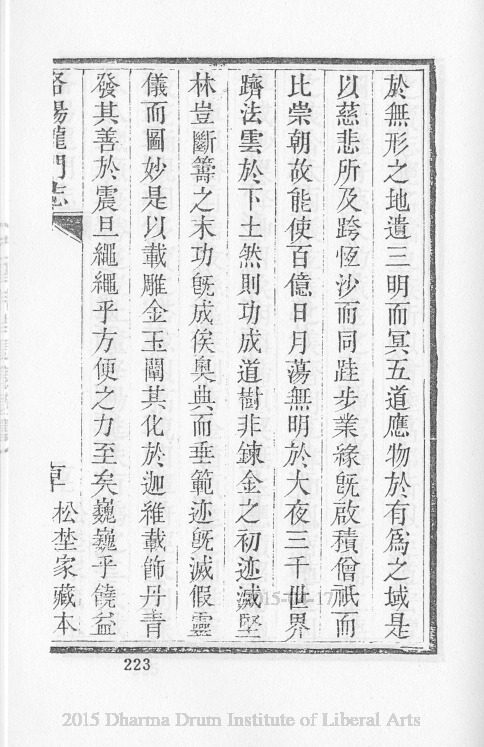 於無形之地遺三明而冥五道應物於有爲之域是
以慈悲所及跨恆沙而同跬步業緣旣啟積僧祇而
比崇朝故能使百億日月蕩無明於大夜三千世界
躋法雲於下土然則功成道樹非鍊金之初迹滅堅
林豈斷籌之末功旣成俟奥典而垂範迹旣滅假靈
儀而圖妙是以載雕金玉闡其化於迦維載飾丹青
發其善於震旦繩繩乎方便之力至矣巍巍乎饒益
洛陽龍門志
松埜家藏本
223
2015 Dharma Drum Institute of Liberal Arts